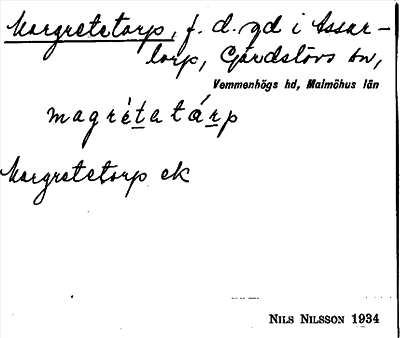 Margretetorp, f. d. gd i Assar-
torp, Gärdslövs sn,
Vemmenhögs hd, Malmöhus län
magrétatárp
Margretetorp ek
NILS NILSSON 1934